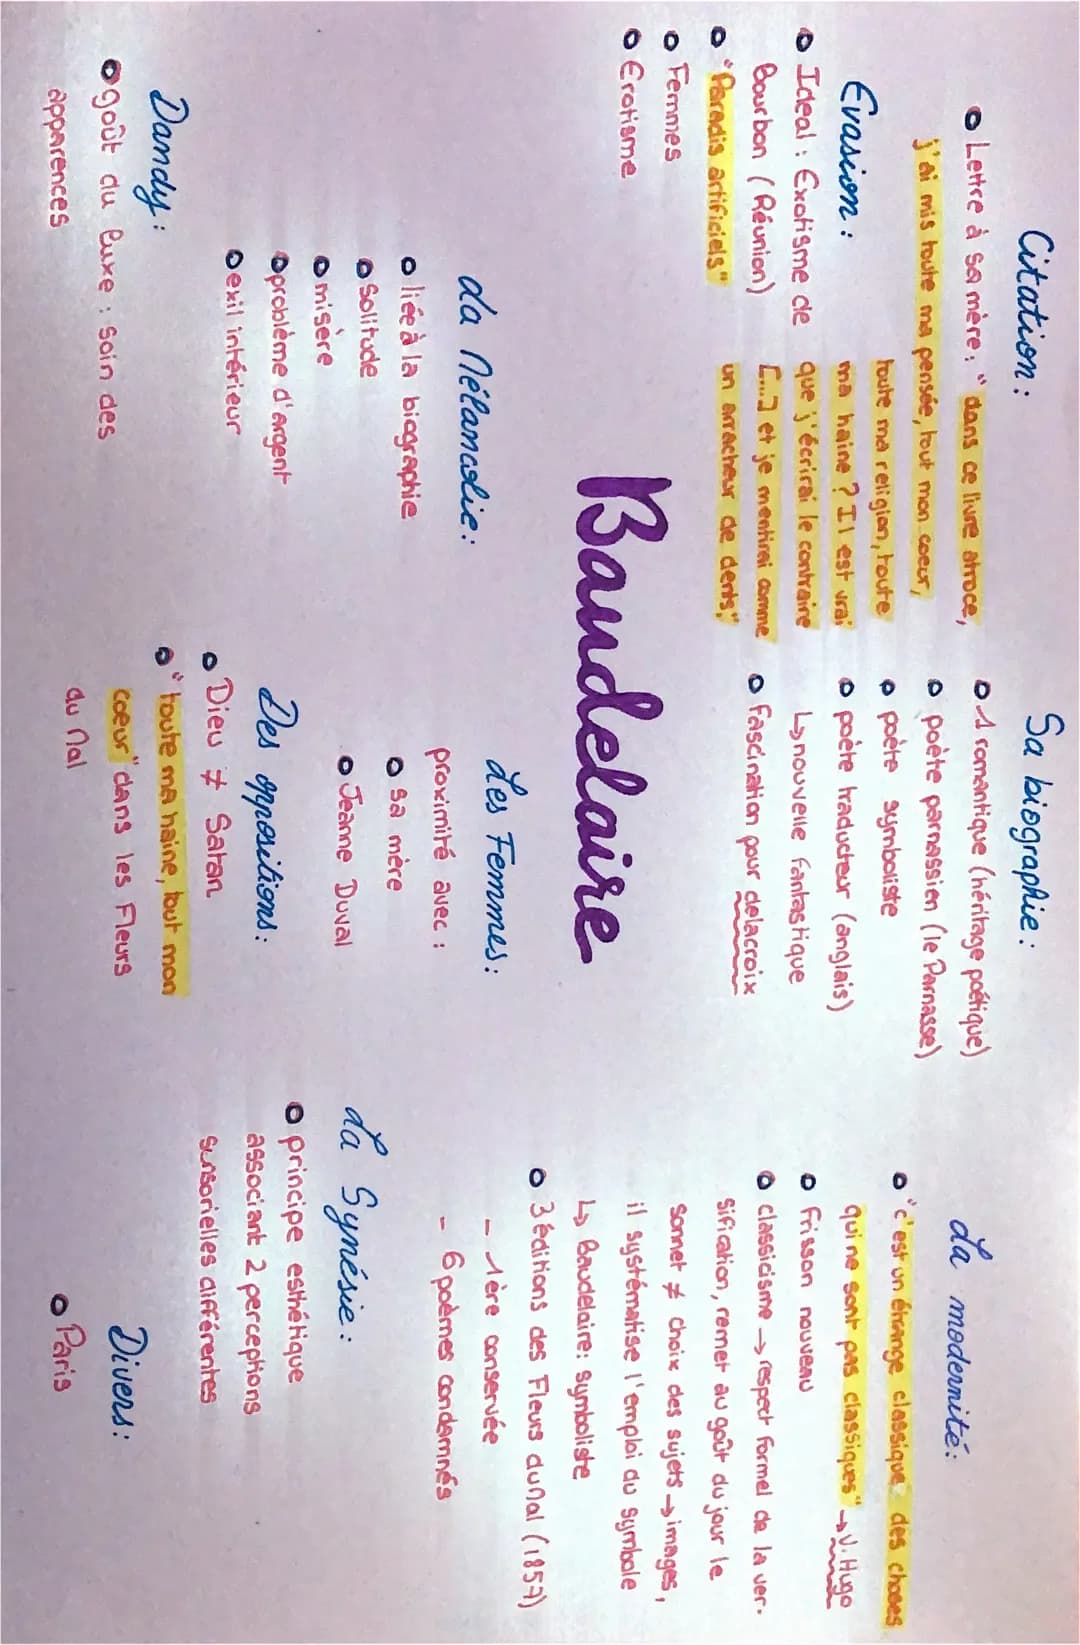 Citation :
• Lettre à sa mère : "dans ce livre atroce,
j'ai mis toute ma pensée, tout mon coeur,
toute ma religion, toute
ma haine ? Il est vrai
que j'écrirai le contraire
[...] et je mentirai comme
un arracheur de dents,"
Evasion :
• Ideal : Exotisme de
Bourbon (Réunion)
• "Paradis artificiels"
• Femmes
• Erotisme
Sa biographie :
• 1 romantique (héritage poétique)
• poète parnassien (le Parnasse)
• poète symboliste
• poète traducteur (anglais)
↳ nouvelle fantastique
• fascination pour delacroix
La modernité :
• "c'est un étrange classique des choses
qui ne sont pas classiques" → V. Hugo
• frisson nouveau
• classicisme → respect formel de la ver-
sification, remet au goût du jour le
sonnet ≠ choix des sujets → images,
il systématise l'emploi du symbole
↳ Baudelaire : symboliste
• 3 éditions des Fleurs du Mal (1857)
- 1ère conservée
- 6 poèmes condamnés
Baudelaire
La Mélancolie :
• liée à la biographie
• Solitude
• misère
• problème d'argent
• exil intérieur
Les Femmes :
proximité avec :
• sa mère
• Jeanne Duval
La Synésie :
• principe esthétique
associant 2 perceptions
sensorielles différentes
Dandy :
• goût du luxe : soin des
apparences
Des oppositions :
• Dieu ≠ Satan
• "toute ma haine, tout mon
coeur" dans les Fleurs
du Mal
Divers :
• Paris